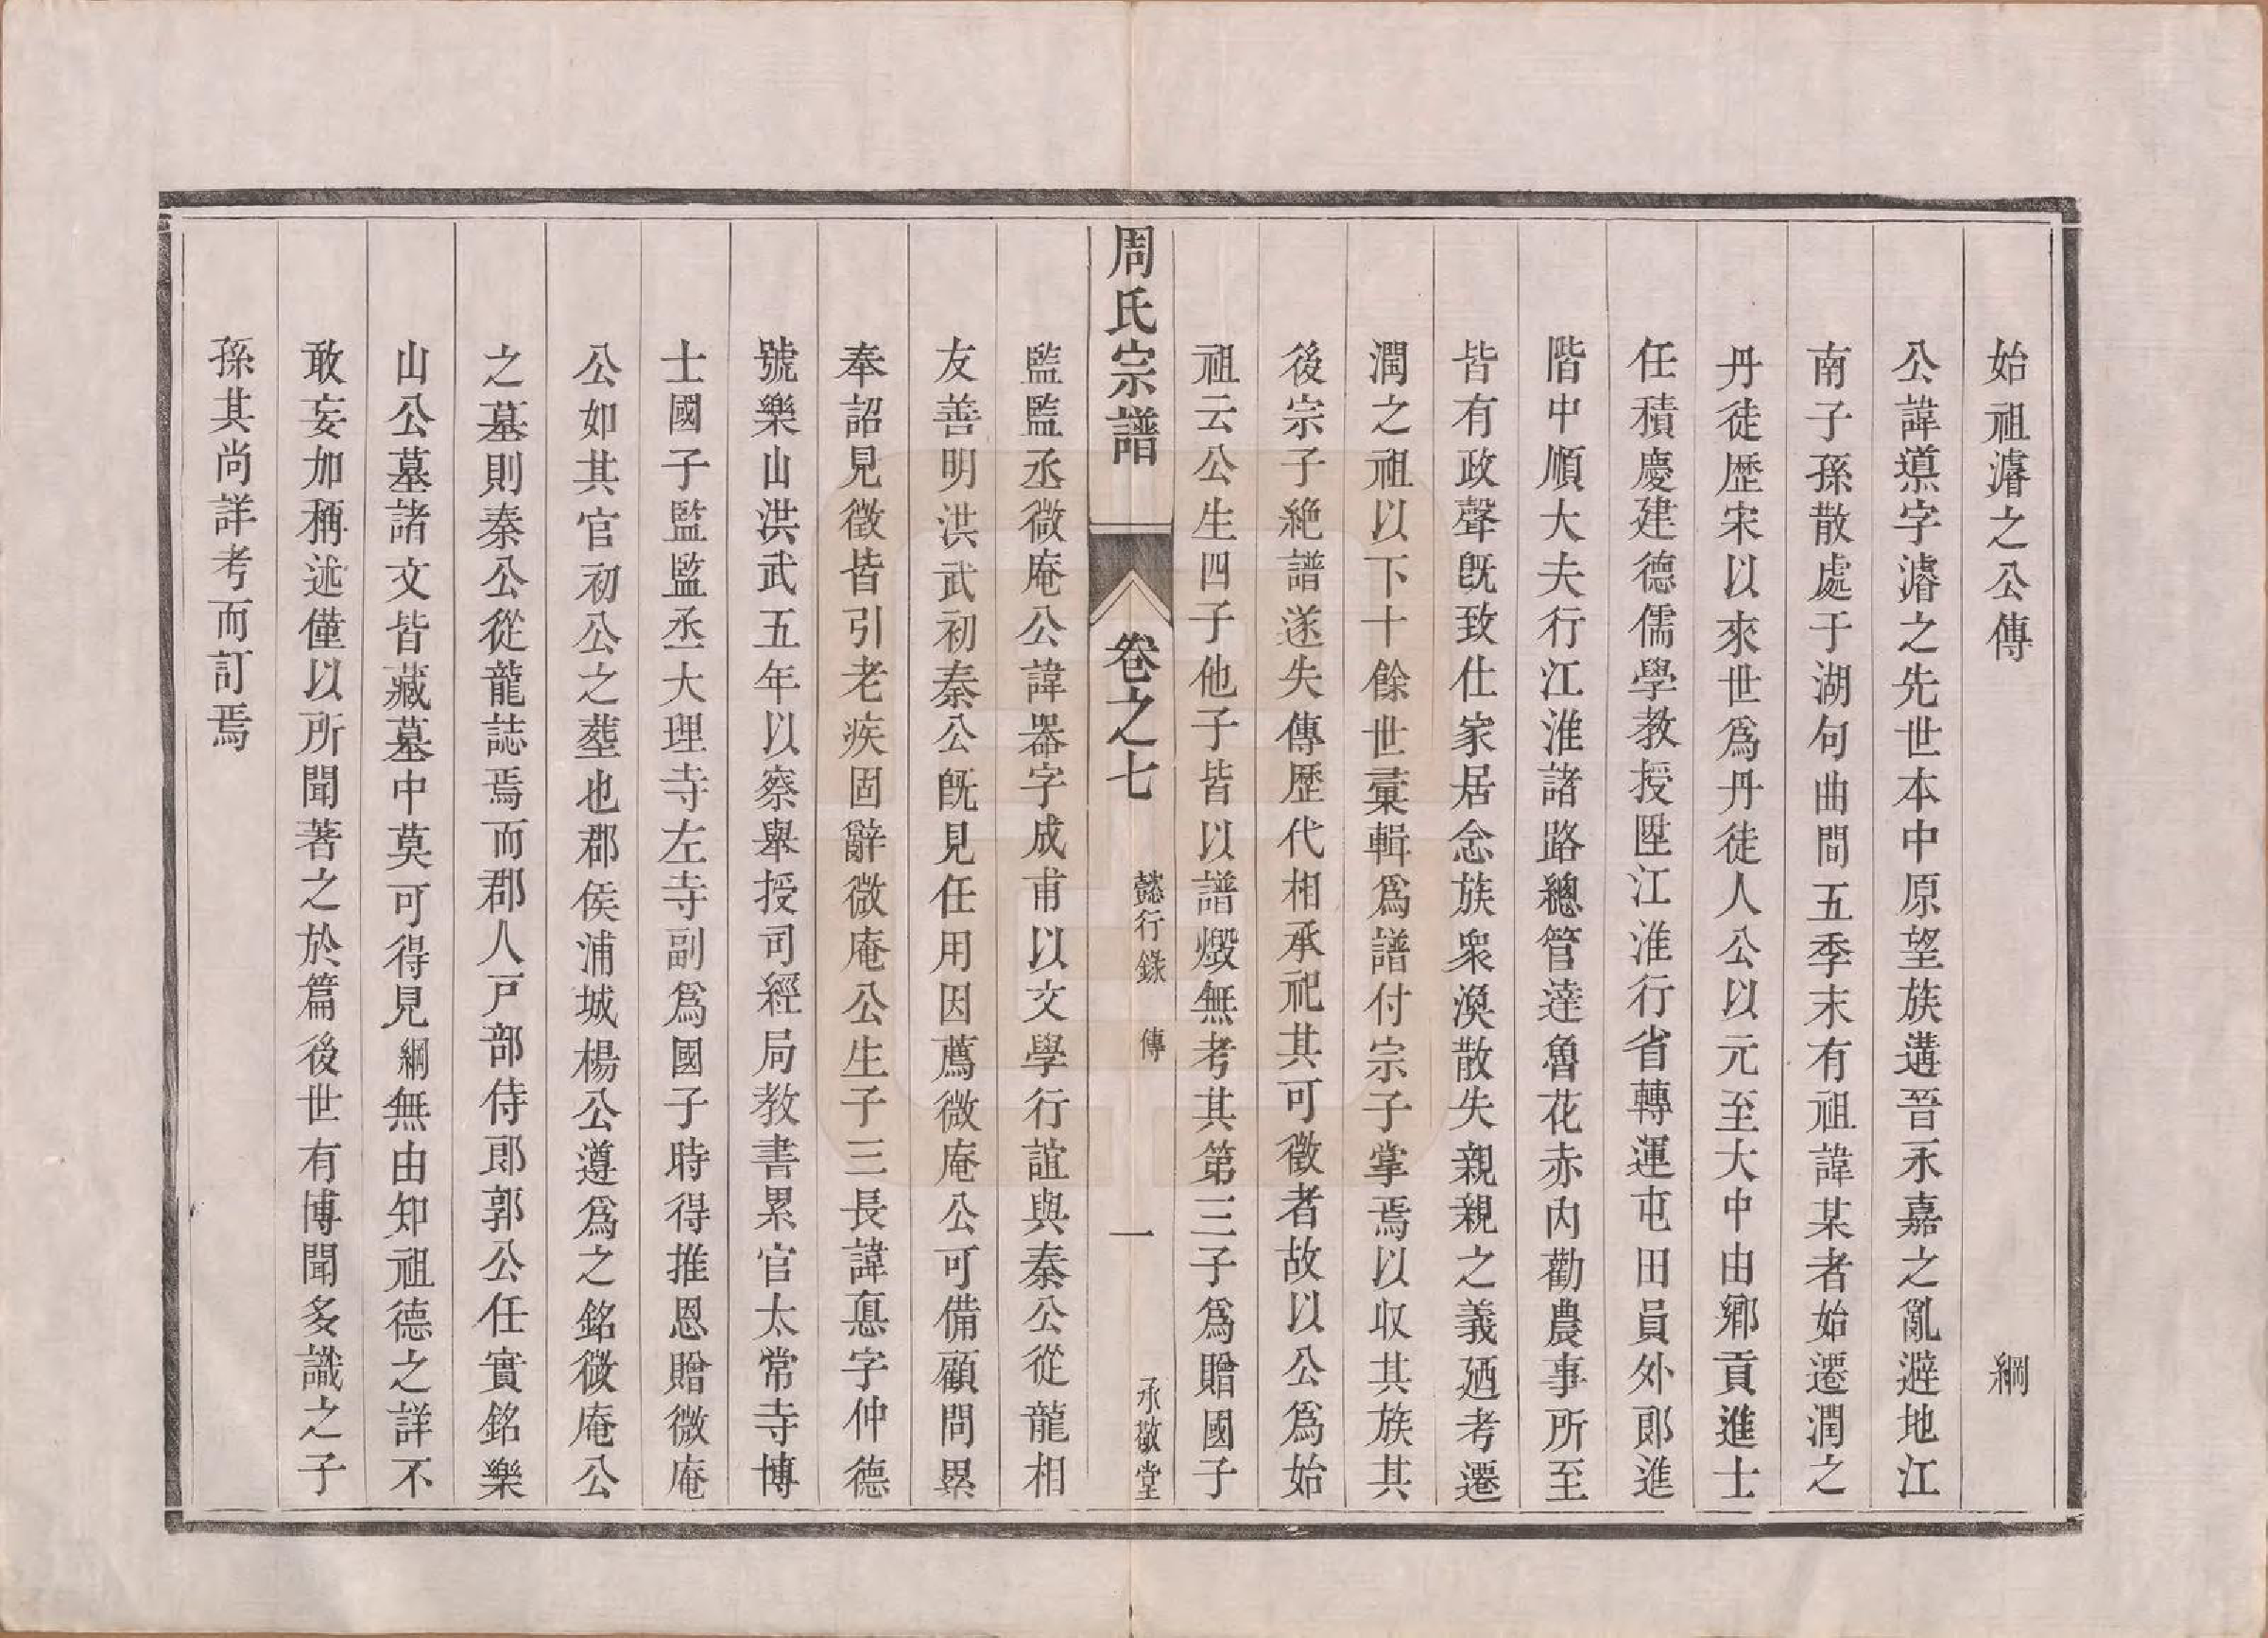 始祖濬之公傳　綱
公諱㬢字濬之先世本中原望族遘晉永嘉之亂避地江
南子孫散處于湖句曲間五季末有祖諱某者始遷潤之
丹徒歷宋以來世爲丹徒人公以元至大中由鄉貢進士
任積慶建德儒學教授陞江淮行省轉運屯田員外郎進
階中順大夫行江淮諸路總管達魯花赤内勸農事所至
皆有政聲既致仕家居念族衆渙散失親親之義廼考遷
潤之祖以下十餘世彙輯爲譜付宗子掌焉以收其族其
後宗子絶譜遂失傳歷代相承祀其可徵者故以公爲始
祖云公生四子他子皆以譜燬無考其第三子爲贈國子
周氏宗譜　卷之七　懿行錄　傳　一　承敬堂
監監丞微庵公諱器字成甫以文學行誼與秦公從龍相
友善明洪武初秦公既見任用因薦微庵公可備顧問累
奉詔見徵皆引老疾固辭微庵公生子三長諱惪字仲德
號樂山洪武五年以察舉授司經局教書累官太常寺博
士國子監監丞大理寺左寺副爲國子時得推恩贈微庵
公如其官初公之葬也郡侯浦城楊公遵爲之銘微庵公
之墓則秦公從龍誌焉而郡人戸部侍郎郭公任實銘樂
山公墓諸文皆藏墓中莫可得見綱無由知祖德之詳不
敢妄加稱述僅以所聞著之於篇後世有博聞多識之子
孫其尚詳考而訂焉